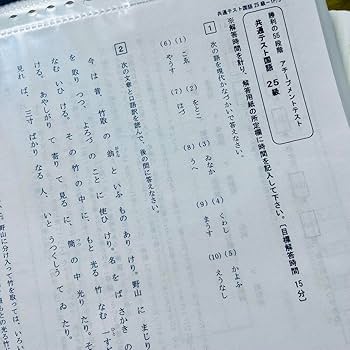 共通テスト国語 25級
勝利の55段階 アチーブメントテスト
共通テスト国語 25級
※解答時間を計り、解答用紙の所定欄に時間を記入して下さい。（目標解答時間 15分）
1 次の語を現代かなづかいで答えなさい。
(1) こゑ (2) をとこ (3) ゐなか (4) くわし (5) かよふ
(6) (7) はづ (8) うへ (9) まうす (10) えうなし
2 次の文章と口語訳を読んで、後の問に答えなさい。
今は昔、竹取の翁といふものありけり。野山にまじり
を取りつつ、よろづのことに使ひけり。名をばさかきの
なむいひける。その竹の中に、もと光る竹なむ一すぢ
ける。あやしがりて寄りて見るに、筒の中光りたり。そ
見れば、三寸ばかりなる人、いとうつくしうてゐたり。
野山に分け入って竹を取っては、いろい